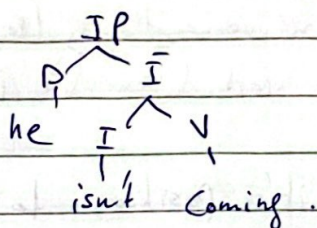 IP
D Ī
he I V
isn't Coming.